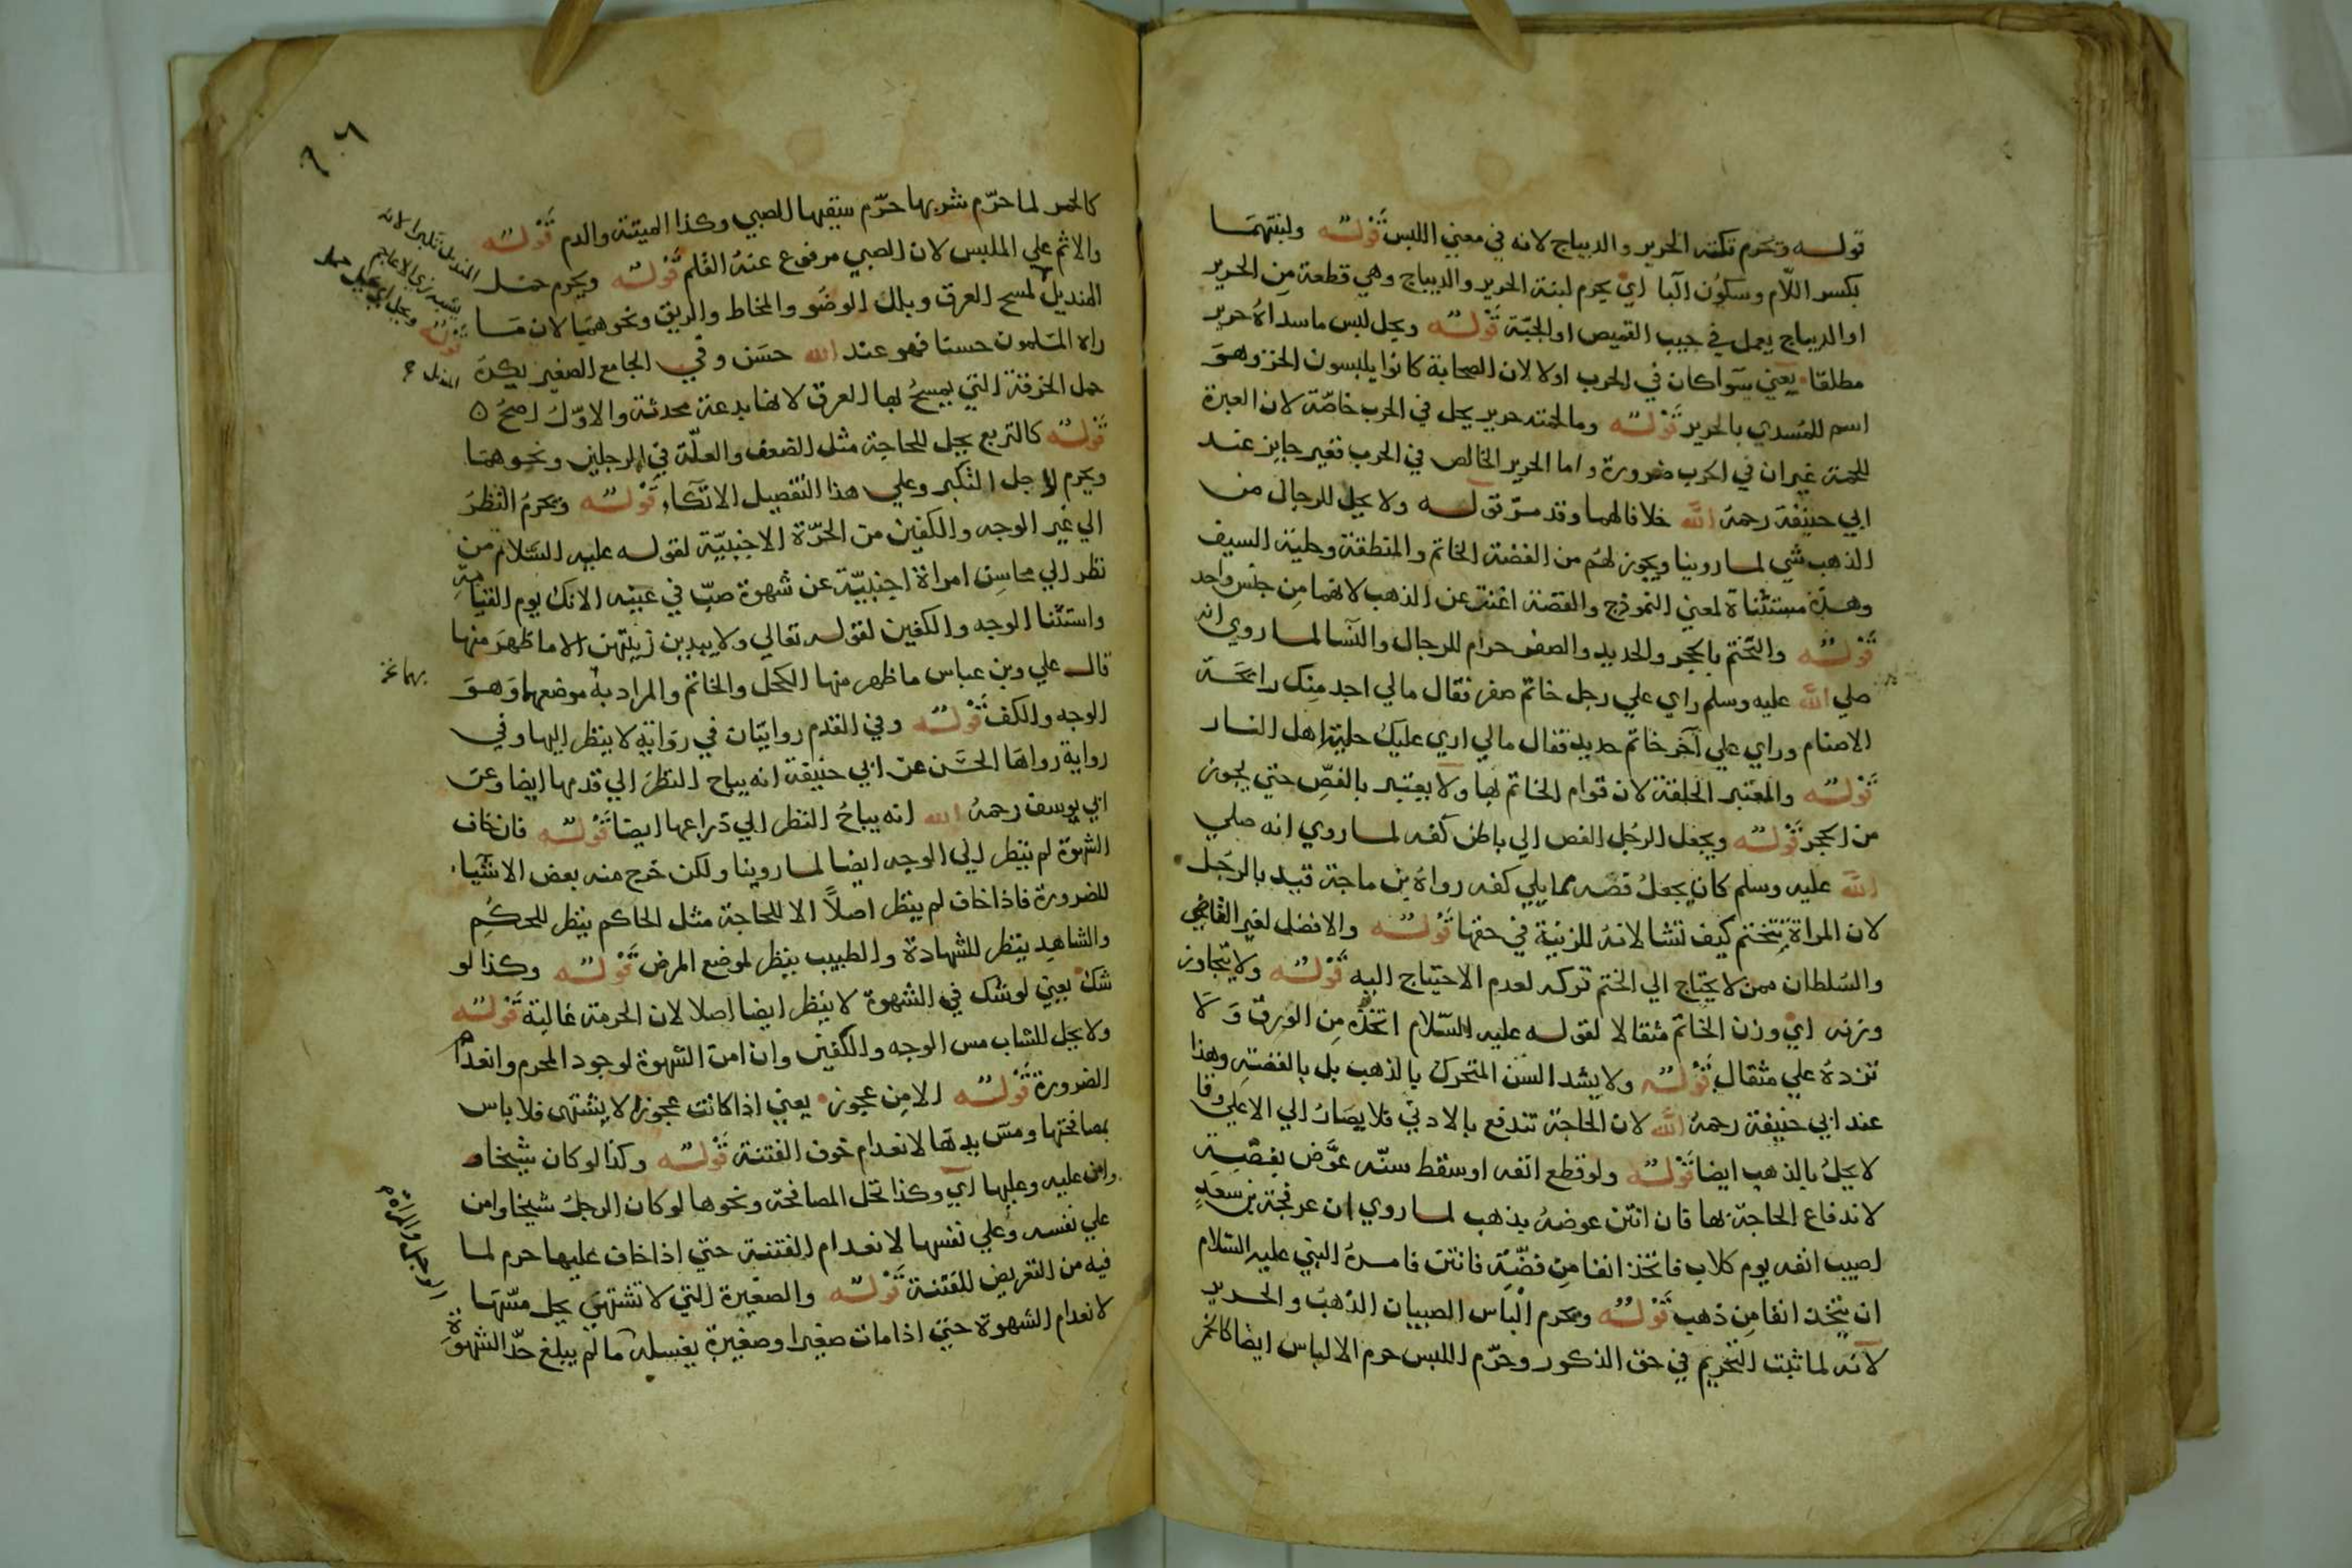 قوله وتحرم تكته الحرير والديباج لانه في معني اللبس قوله ولبنتهما
بكسر اللام وسكون البا اي يحرم لبنة الحرير والديباج وهي قطعة من الحرير
او الديباج يعمل في جيب القميص او الجبة قوله ويحل لبس ما سداه حرير
مطلقا يعني سوا كان في الحرب اولا لان الصحابة كانوا يلبسون الخز وهو
اسم للمسدي بالحرير قوله وما لحمته حرير يحل في الحرب خاصة لان العبرة
للحمة غير ان في الحرب ضرورة واما الحرير الخالص في الحرب فغير جايز عند
ابي حنيفة رحمه الله خلافا لهما وقد مر قوله ولا يحل للرجال من
الذهب شي لما روينا ويجوز لهم من الفضة الخاتم والمنطقة وحلية السيف
وهذه مستثناة لمعني النموذج والفضة اغنت عن الذهب لانهما من جنس واحد
قوله والتختم بالحجر والحديد والصفر حرام للرجال والنسا لما روي انه
صلي الله عليه وسلم راي علي رجل خاتم صفر فقال مالي اجد منك رايحة
الاصنام وراي علي آخر خاتم حديد فقال مالي اري عليك حلية اهل النار
قوله والمعتبر الحلقة لان قوام الخاتم بها ولا يعتبر بالفص حتي يجوز
من الحجر قوله ويجعل الرجل الفص الي باطن كفه لما روي انه صلي
الله عليه وسلم كان يجعل فصه مما يلي كفه رواه بن ماجة قيد بالرجل
لان المراة تتختم كيف تشا لانه للزينة في حقها قوله والافضل لغير القاضي
والسلطان ممن لا يحتاج الي الختم تركه لعدم الاحتياج اليه قوله ولا يتجاوز
وزنه اي وزن الخاتم مثقالا لقوله عليه السلام اتخذه من الورق ولا
تزده علي مثقال قوله ولا يشد السن المتحرك بالذهب بل بالفضة وهذا
عند ابي حنيفة رحمه الله لان الحاجة تندفع بالادني فلا يصار الي الاعلي وقا
لا يحل بالذهب ايضا قوله ولو قطع انفه او سقط سنه عوض بفضة
لاندفاع الحاجة بها فان انتن عوضه بذهب لما روي ان عرفجة بن سعد
اصيب انفه يوم كلاب فاتخذ انفا من فضة فانتن فامره النبي عليه السلام
ان يتخذ انفا من ذهب قوله ويحرم الباس الصبيان الذهب والحرير
لانه لما ثبت التحريم في حق الذكور وحرم اللبس حرم الالباس ايضا كالخمر
٩٠٦
كالخمر لما حرم شربها حرم سقيها للصبي وكذا الميتة والدم قوله
والاثم علي الملبس لان الصبي مرفوع عنه القلم قوله ويحرم حمل
المنديل تكبرا لانه
يشبه زي الاعاجم
قوله ويحل اي يحل حمل
المنديل
المنديل لمسح العرق وبلل الوضو والمخاط والريق ونحوهما لان ما
راه المسلمون حسنا فهو عند الله حسن وفي الجامع الصغير يكره
حمل الخرقة التي يمسح بها العرق لانها بدعة محدثة والاول اصح
قوله كالتربع يحل للحاجة مثل الضعف والعلة في الرجلين ونحوهما
ويحرم لاجل التكبر وعلي هذا التفصيل الاتكاء قوله ويحرم النظر
الي غير الوجه والكفين من الحرة الاجنبية لقوله عليه السلام من
نظر الي محاسن امراة اجنبية عن شهوة صب في عينيه الانك يوم القيامة
واستثنا الوجه والكفين لقوله تعالي ولا يبدين زينتهن الا ما ظهر منها
قال علي وبن عباس ما ظهر منها الكحل والخاتم والمراد به موضعهما وهو
الوجه والكف قوله وفي القدم روايتان في رواية لا ينظر اليها وفي
رواية رواها الحسن عن ابي حنيفة انه يباح النظر الي قدمها ايضا وعن
ابي يوسف رحمه الله انه يباح النظر الي ذراعها ايضا قوله فان خاف
الشهوة لم ينظر الي الوجه ايضا لما روينا ولكن خرج منه بعض الاشياء
للضرورة فاذا خاف لم ينظر اصلا الا للحاجة مثل الحاكم ينظر للحكم
والشاهد ينظر للشهادة والطبيب ينظر لموضع المرض قوله وكذا لو
شك يعني لو شك في الشهوة لا ينظر ايضا اصلا لان الحرمة غالبة قوله
ولا يحل للشاب مس الوجه والكفين وان امن الشهوة لوجود المحرم وانعدام
الضرورة قوله الا من عجوز يعني اذا كانت عجوزا لا يشتهى فلا باس
بمصافحتها ومس يدها لانعدام خوف الفتنة قوله وكذا لو كان شيخا
وامن عليه وعليها اي وكذا تحل المصافحة ونحوها لو كان الرجل شيخا وامن
علي نفسه وعلي نفسها لانعدام الفتنة حتي اذا خاف عليها حرم لما
فيه من التعريض للفتنة قوله والصغيرة التي لا تشتهي يحل مسها
لانعدام الشهوة حتي اذا مات صغير او صغيرة يغسله ما لم يبلغ حد الشهوة
الرجل والمراة